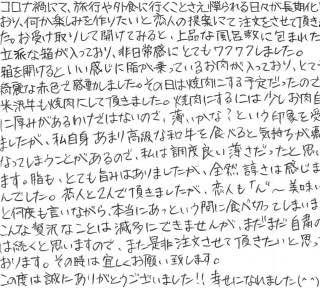 コロナ禍にて、旅行や外食に行くことさえ憚られる日々が長期化
おり、何か楽しみを作りたいと恋人の提案にて注文をさせて頂き
た。お受け取りして開けてみると、上品な風呂敷に包まれた
立派な箱が入っており、非日常感にとてもワクワクしました。
箱を開けるといい感じに脂が乗っているお肉が入っており、とて
綺麗な赤色で感動しました。その日は焼肉にする予定だったので
米沢牛も焼肉にして頂きました。焼肉にするには少しお肉自
に厚みがあるわけではないので、薄いかな?という印象を受
ましたが、私自身あまり高級な和牛を食べると気持ちが悪
なってしまうことがあるので、私は調度良い薄さだったと思い
ます。脂も、とても旨みはありましたが、全然諄さは感じま
んでした。恋人と2人で頂きましたが、恋人も「ん〜美味い
と何度も言いながら、本当にあっという間に食べ切ってしまいま
こんな贅沢なことは滅多にできませんが、まだまだ自粛の
は続くと思いますので、また是非注文させて頂きたいと思っ
おります。その時は宜しくお願い致します。
この度は誠にありがとうございました!!幸せになれました(^^)